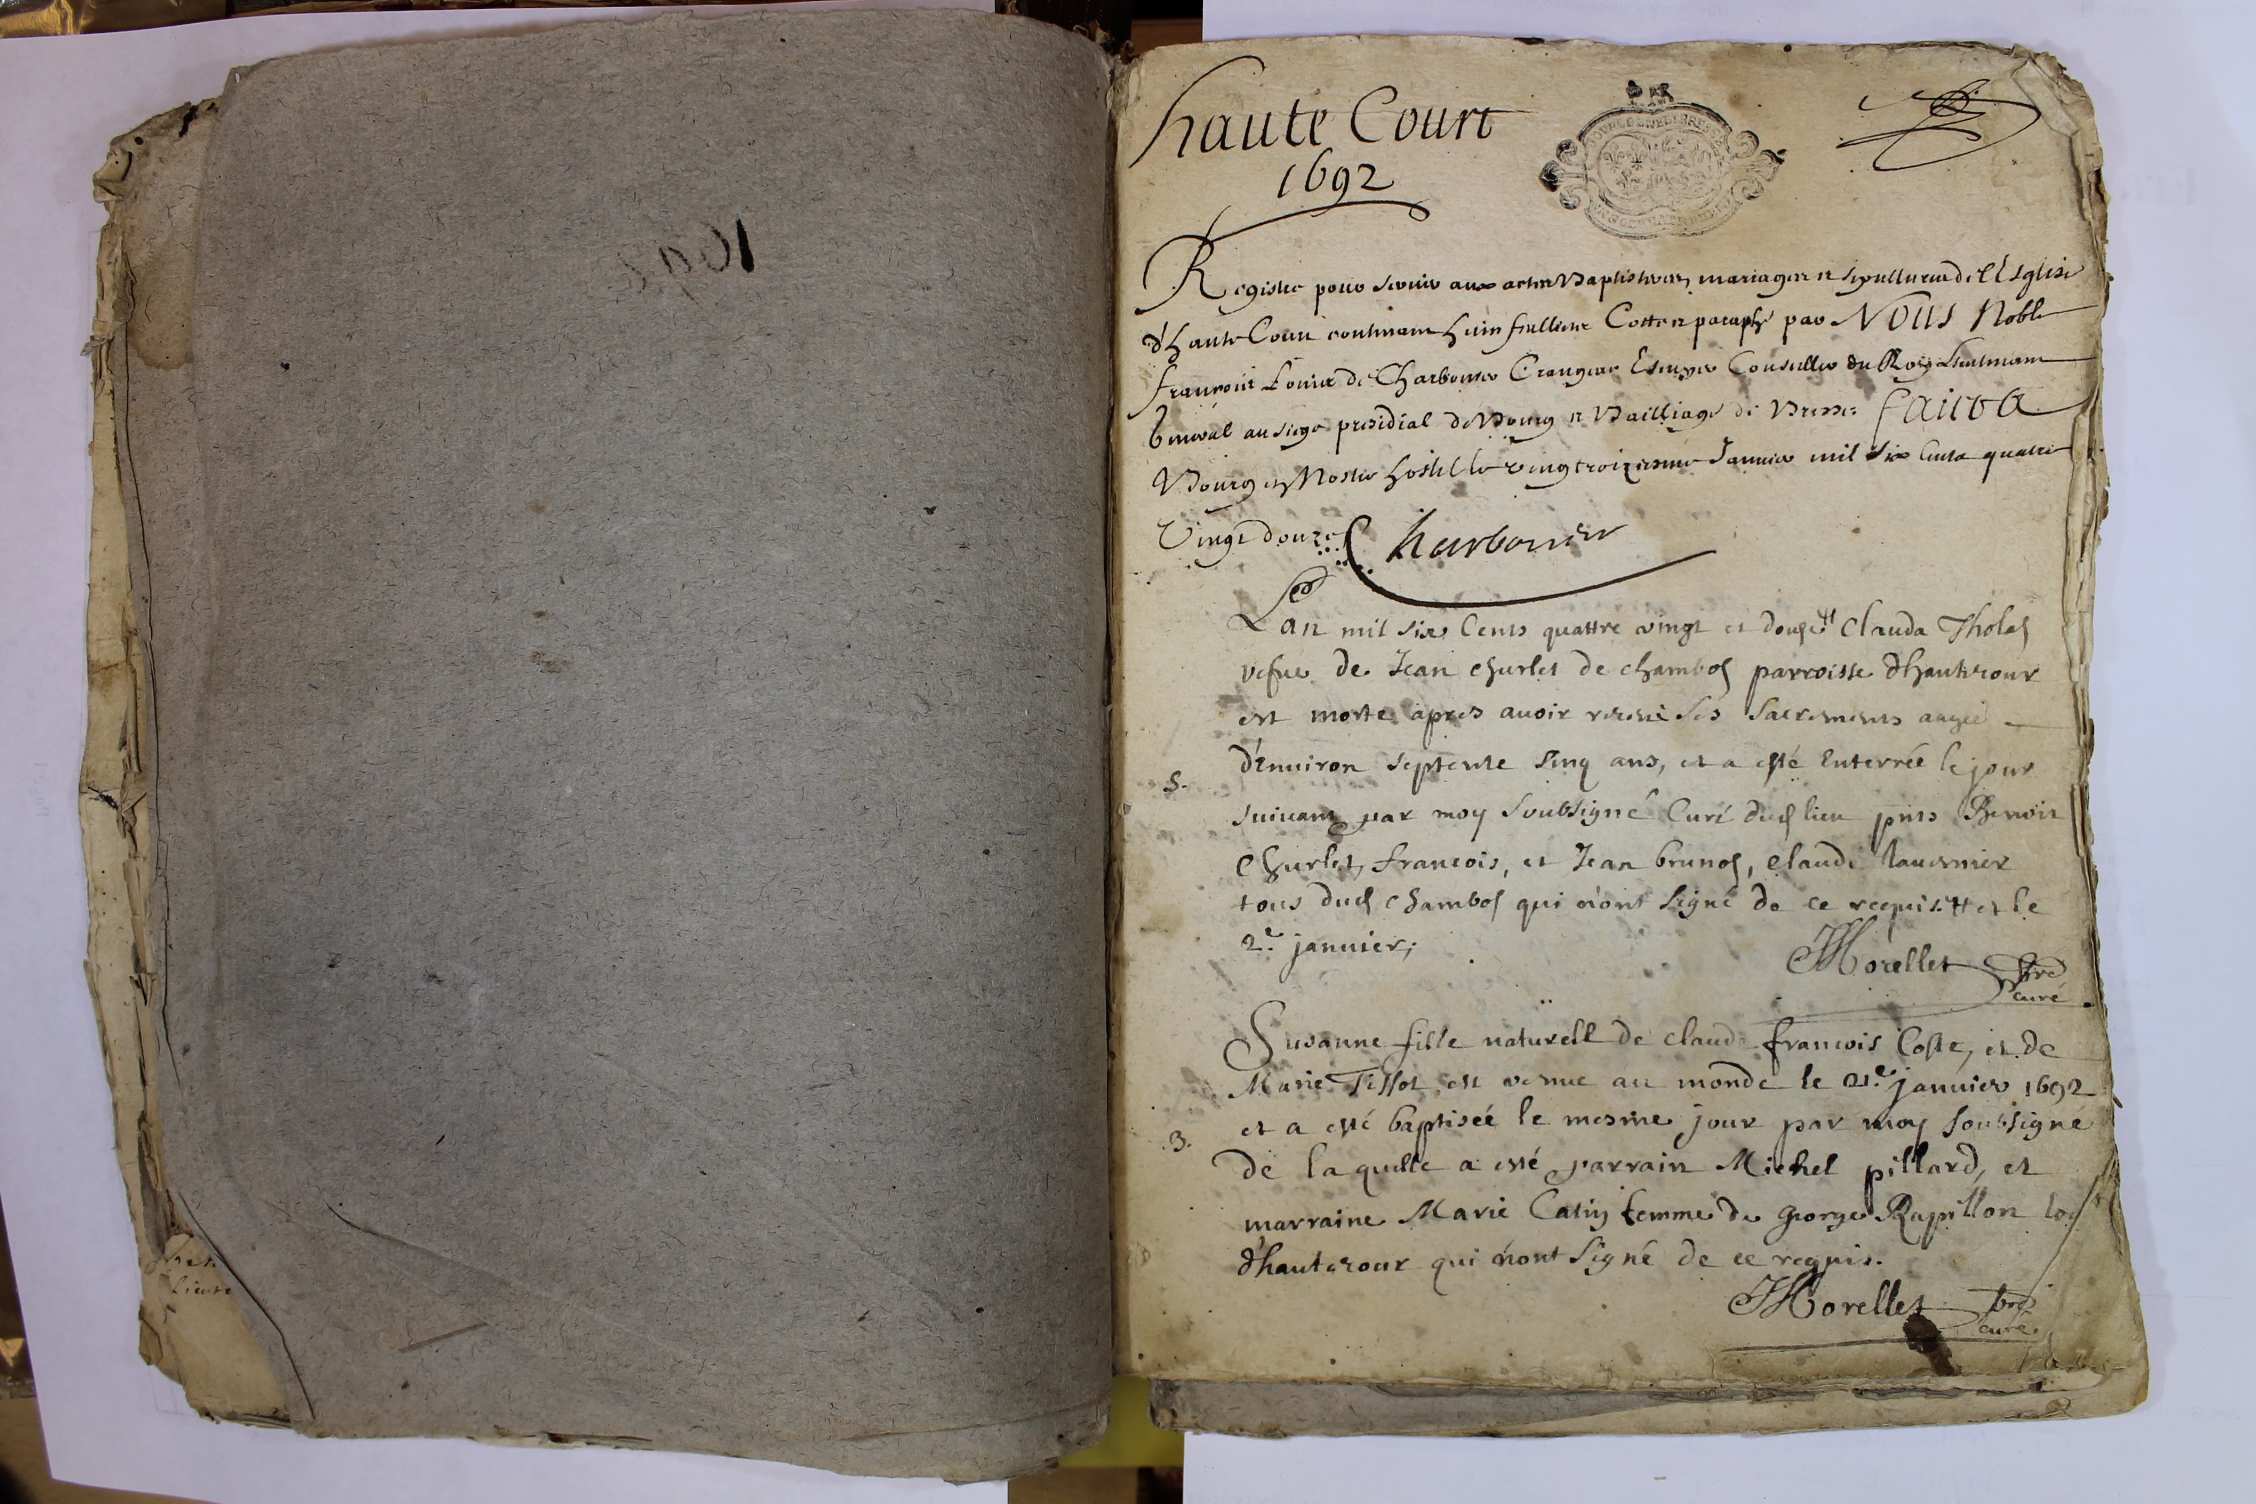 1692
haute Court
1692
Registre pour servir aux actes Baptistaires, mariages et sepultures de l'Esglise
d'haute Cour contenant huit feuillets Cottes et paraphé par Nous Noble
françois Louis de Charbonnier Crangeac Escuyer Conseiller du Roy Lieutenant
General au siege presidial de Bourg et Bailliage de Bresse faict a
Bourg en Nostre hostel le vingt troiziesme Janvier mil six Cents quatre
Vingt douze Charbonnier
L'an mil six Cents quattre vingt et douze Clauda Tholas
vefue de Jean Churlet de chambos parroisse d'hautecour
est morte apres auoir receu ses sacrements aagée
d'enuiron septente sinq ans, et a esté Enterrée le jour
suiuant par moy soubsigné Curé dud lieu pnts Benoit
Churlet, francois, et Jean brunos, claude tauernier
tous dud chambos qui n'ont signé de ce requis et ce le
2e januier;
Morellet pbre
curé
S.
Susanne fille naturell de claude francois Coste, et de
Marie Tissot est venue au monde le 21e januier 1692
et a esté baptiseé le mesme jour par moy soubsigné
de laquelle a esté parrain Michel pillard, et
marraine Marie Catin femme de george Rapillon
d'hautecour qui n'ont signé de ce requis.
B.
Morellet pbre
curé